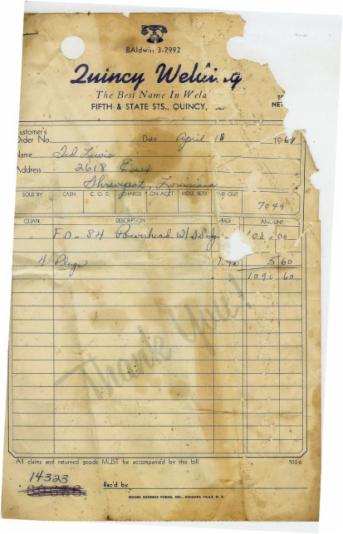 BAldwin 3-2992
Quincy Welding
The Best Name In Weld
FIFTH & STATE STS., QUINCY,
NET
Customer's
Order No. Date April 18 196
Name Ted Lewis
Address 2618
Shreveport, Louisiana
SOLD BY CASH C. O. D. CHARGE ON ACCT. MDSE. RETD. PAID OUT
7099
QUAN. DESCRIPTION PRICE AMOUNT
FD-8H Powerhead W/
4 Plugs 1.40 5 60
60
Thank You!
All claims and returned goods MUST be accompanied by this bill.
14323
Rec'd by